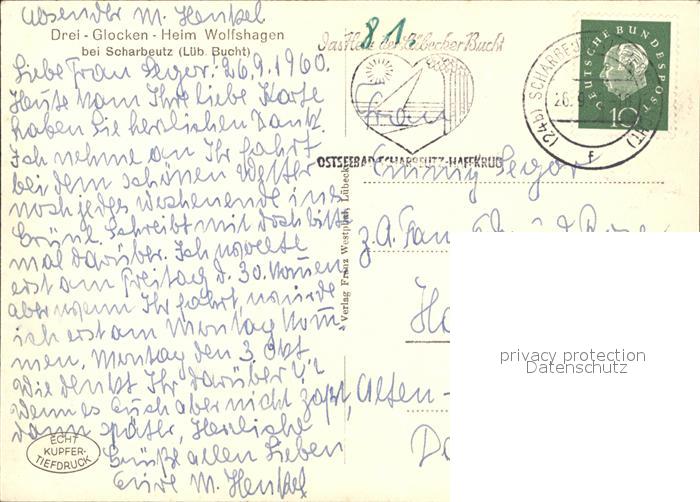 Absender M. Henkel
Drei - Glocken - Heim Wolfshagen
bei Scharbeutz (Lüb. Bucht)
Liebe Frau Seger! 26.9.1960.
Heute kam Ihre liebe Karte
haben Sie herzlichen Dank.
Ich nehme an Ihr fahrt
bei dem schönen Wetter
noch jedes Wochenende ins
Grüne. Schreibt mir doch bitte
mal darüber. Ich wollte
erst am Freitag d. 30. kommen
aber wenn Ihr fahrt, würde
ich erst am Montag kom-
men, Montag den 3. Okt.
Wie denkt Ihr darüber?
Wenn es Euch aber nicht paßt,
dann später, Herzliche
Grüße allen Lieben
Eure M. Henkel
ECHT
KUPFER-
TIEFDRUCK
Verlag Franz Westphal, Lübeck
8 1.
Das Herz der Lübecker Bucht
OSTSEEBAD SCHARBEUTZ-HAFFKRUG
(24b) SCHARBEU
26.9.
f
DEUTSCHE BUNDESPOST
10
Frau
Emmy Seger
z. A. Frau
Ha
Alten-
privacy protection
Datenschutz